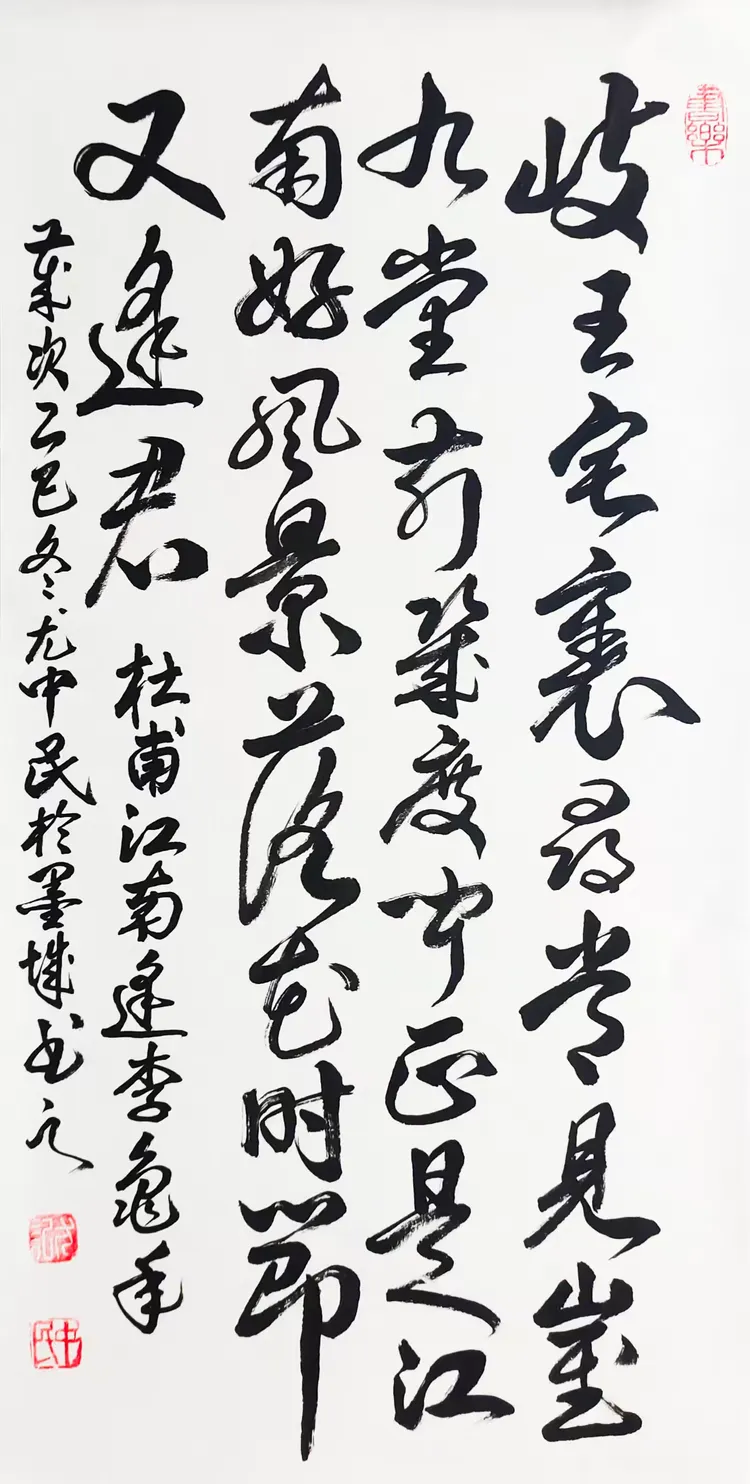 岐王宅裏尋常見崔
九堂前幾度聞正是江
南好風景落花时節
又逢君 杜甫江南逢李龜年
歲次乙巳冬中民於墨城书之